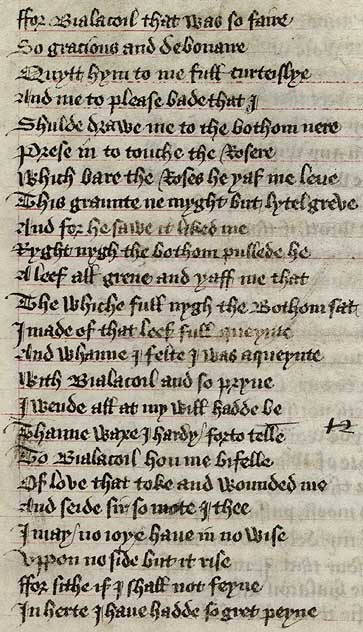 ffor Bialacoil that was so faire
So gracious and debonaire
Quytt hym to me full curteislye
And me to please bade that I
Shulde drawe me to the bothom nere
Prese in to touche the Rosere
Which bare the Roses he yaf me leve
This graunte ne myght but lytel greve
And for he sawe it liked me
Ryght nygh the bothom pullede he
A leef all grene and yaff me that
The whiche full nygh the Bothom sat
I made of that leef full queynte
And whanne I felte I was aqueynte
With Bialacoil and so pryue
I wende all at my will hadde be
Thanne waxe I hardy forto telle
To Bialacoil hou me bifelle
Of love that toke and wounded me
And seide sir so mote I thee
I may no ioye haue in no wise
Vppon no side but it rise
ffor sithe if I shall not feyne
In herte I haue hadde so gret peyne